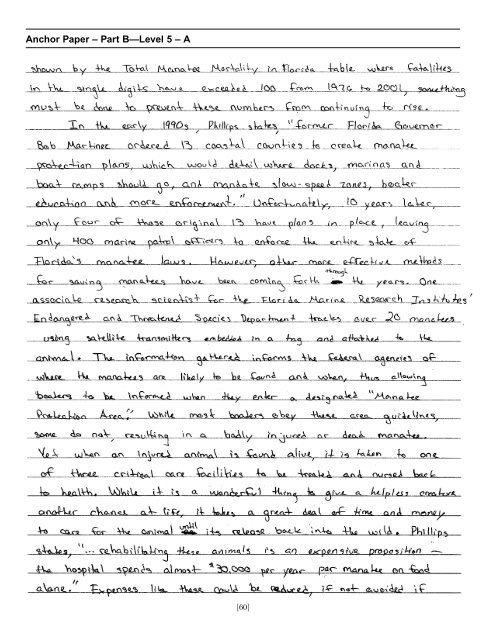 Anchor Paper – Part B—Level 5 – A
shown by the Total Manatee Mortality in Florida table where fatalities
in the single digits have exceeded 100 from 1976 to 2001, something
must be done to prevent these numbers from continuing to rise.
In the early 1990s, Phillips states, "former Florida Governor
Bob Martinez ordered 13 coastal counties to create manatee
protection plans, which would detail where docks, marinas and
boat ramps should go, and mandate slow-speed zones, boater
education and more enforcement." Unfortunately, 10 years later,
only four of those original 13 have plans in place, leaving
only 400 marine patrol officers to enforce the entire state of
Florida's manatee laws. However, other more effective methods
for saving manatees have been coming forth through the years. One
associate research scientist for the Florida Marine Research Institutes'
Endangered and Threatened Species Department tracks over 20 manatees
using satellite transmitters embedded in a tag and attatched to the
animal. The information gathered informs the federal agencies of
where the manatees are likely to be found and when, thus allowing
boaters to be informed when they enter a designated "Manatee
Protection Area." While most boaters obey these area guidelines,
some do not, resulting in a badly injured or dead manatee.
Yet when an injured animal is found alive, it is taken to one
of three critical care facilities to be treated and nursed back
to health. While it is a wonderful thing to give a helpless creature
another chance at life, it takes a great deal of time and money
to care for the animal until its release back into the wild. Phillips
states, "... rehabilitating these animals is an expensive proposition –
the hospital spends almost $30,000 per year per manatee on food
alone." Expenses like these could be reduced, if not avoided if
[60]